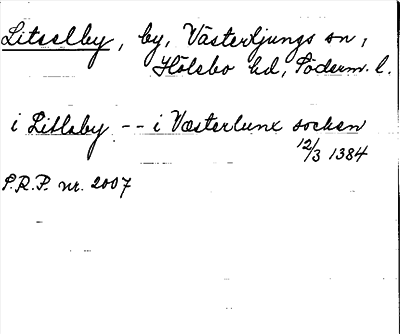 Litselby, by, Västerljungs sn,
Hölebo hd, Söderm. l.
i Litleby -- i Væsterlunx socken
12/3 1384
S.R.P. nr. 2007